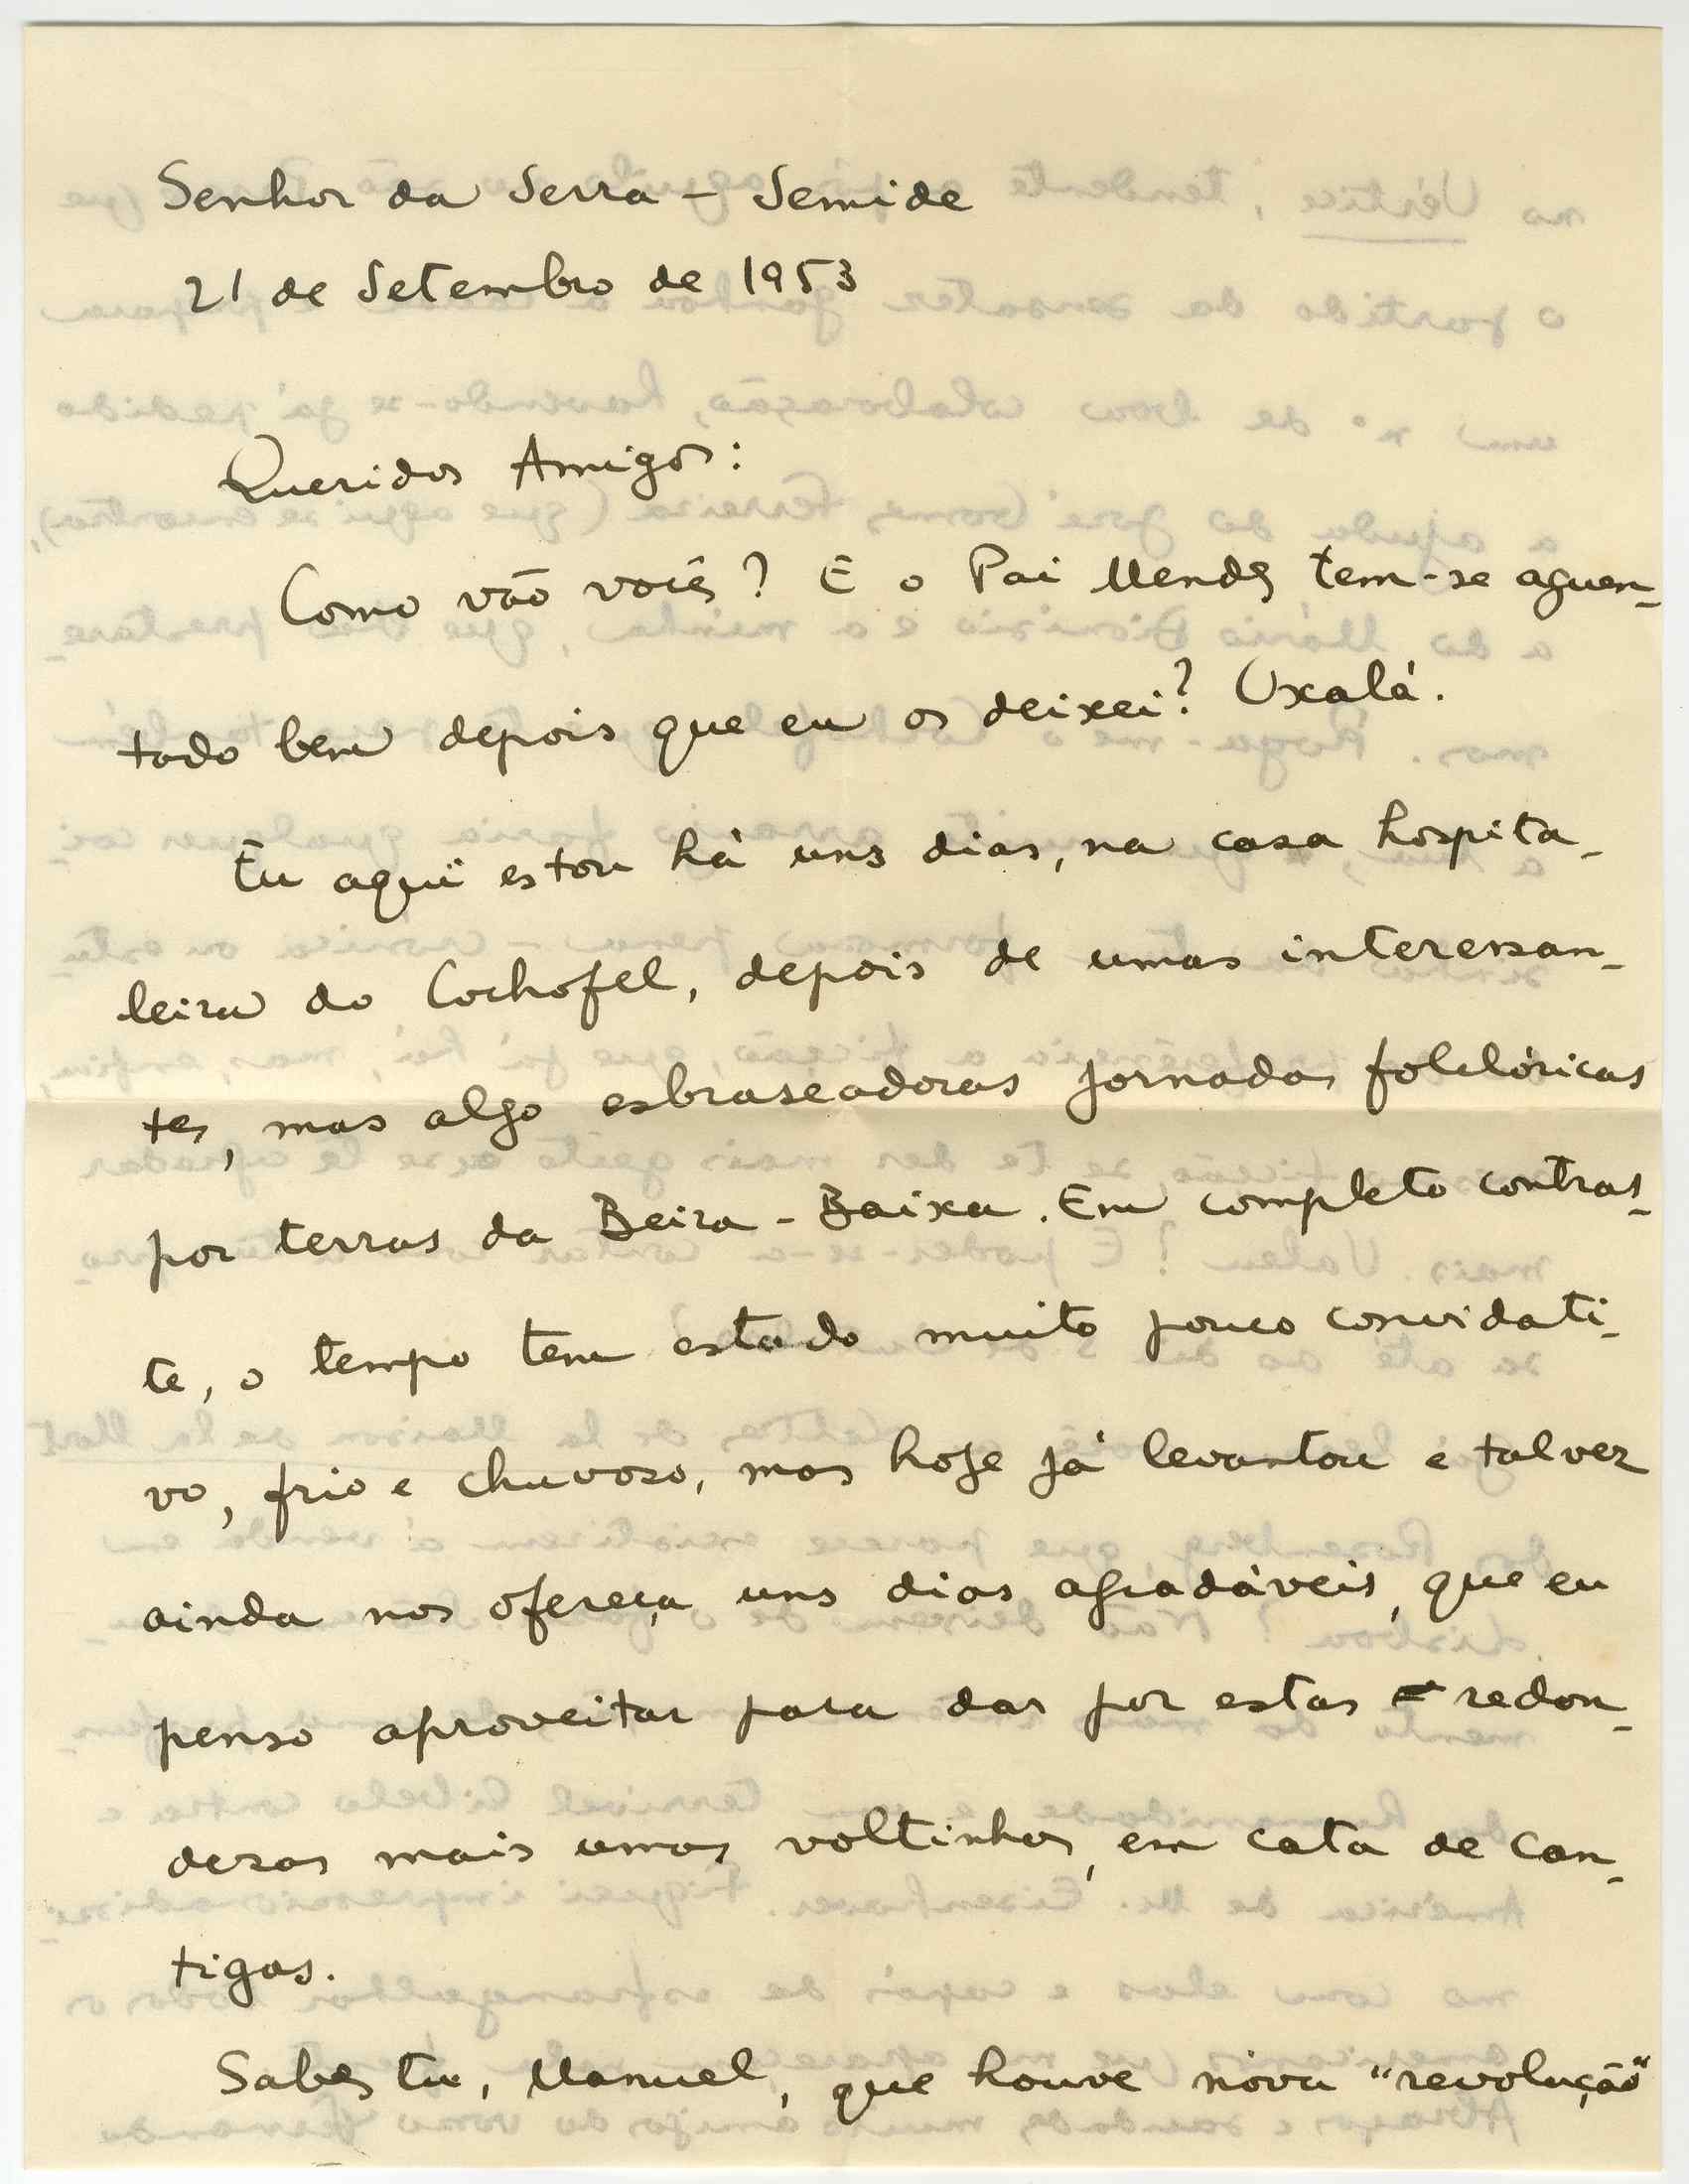 Senhor da Serra - Semide
21 de Setembro de 1953
Queridos Amigos:
Como vão vocês? E o Pai Mendes tem-se aguen-
tado bem depois que eu os deixei? Oxalá.
Eu aqui estou há uns dias, na casa hospita-
leira do Cochofel, depois de umas interessan-
tes, mas algo esbraseadoras jornadas folclóricas
por terras da Beira-Baixa. Em completo contras-
te, o tempo tem estado muito pouco convidati-
vo, frio e chuvoso, mas hoje já levantou e talvez
ainda nos ofereça uns dias agradáveis, que eu
penso aproveitar para dar por estas redon-
dezas mais umas voltinhas, em cata de can-
tigas.
Sabes tu, Manuel, que houve nova "revolução"